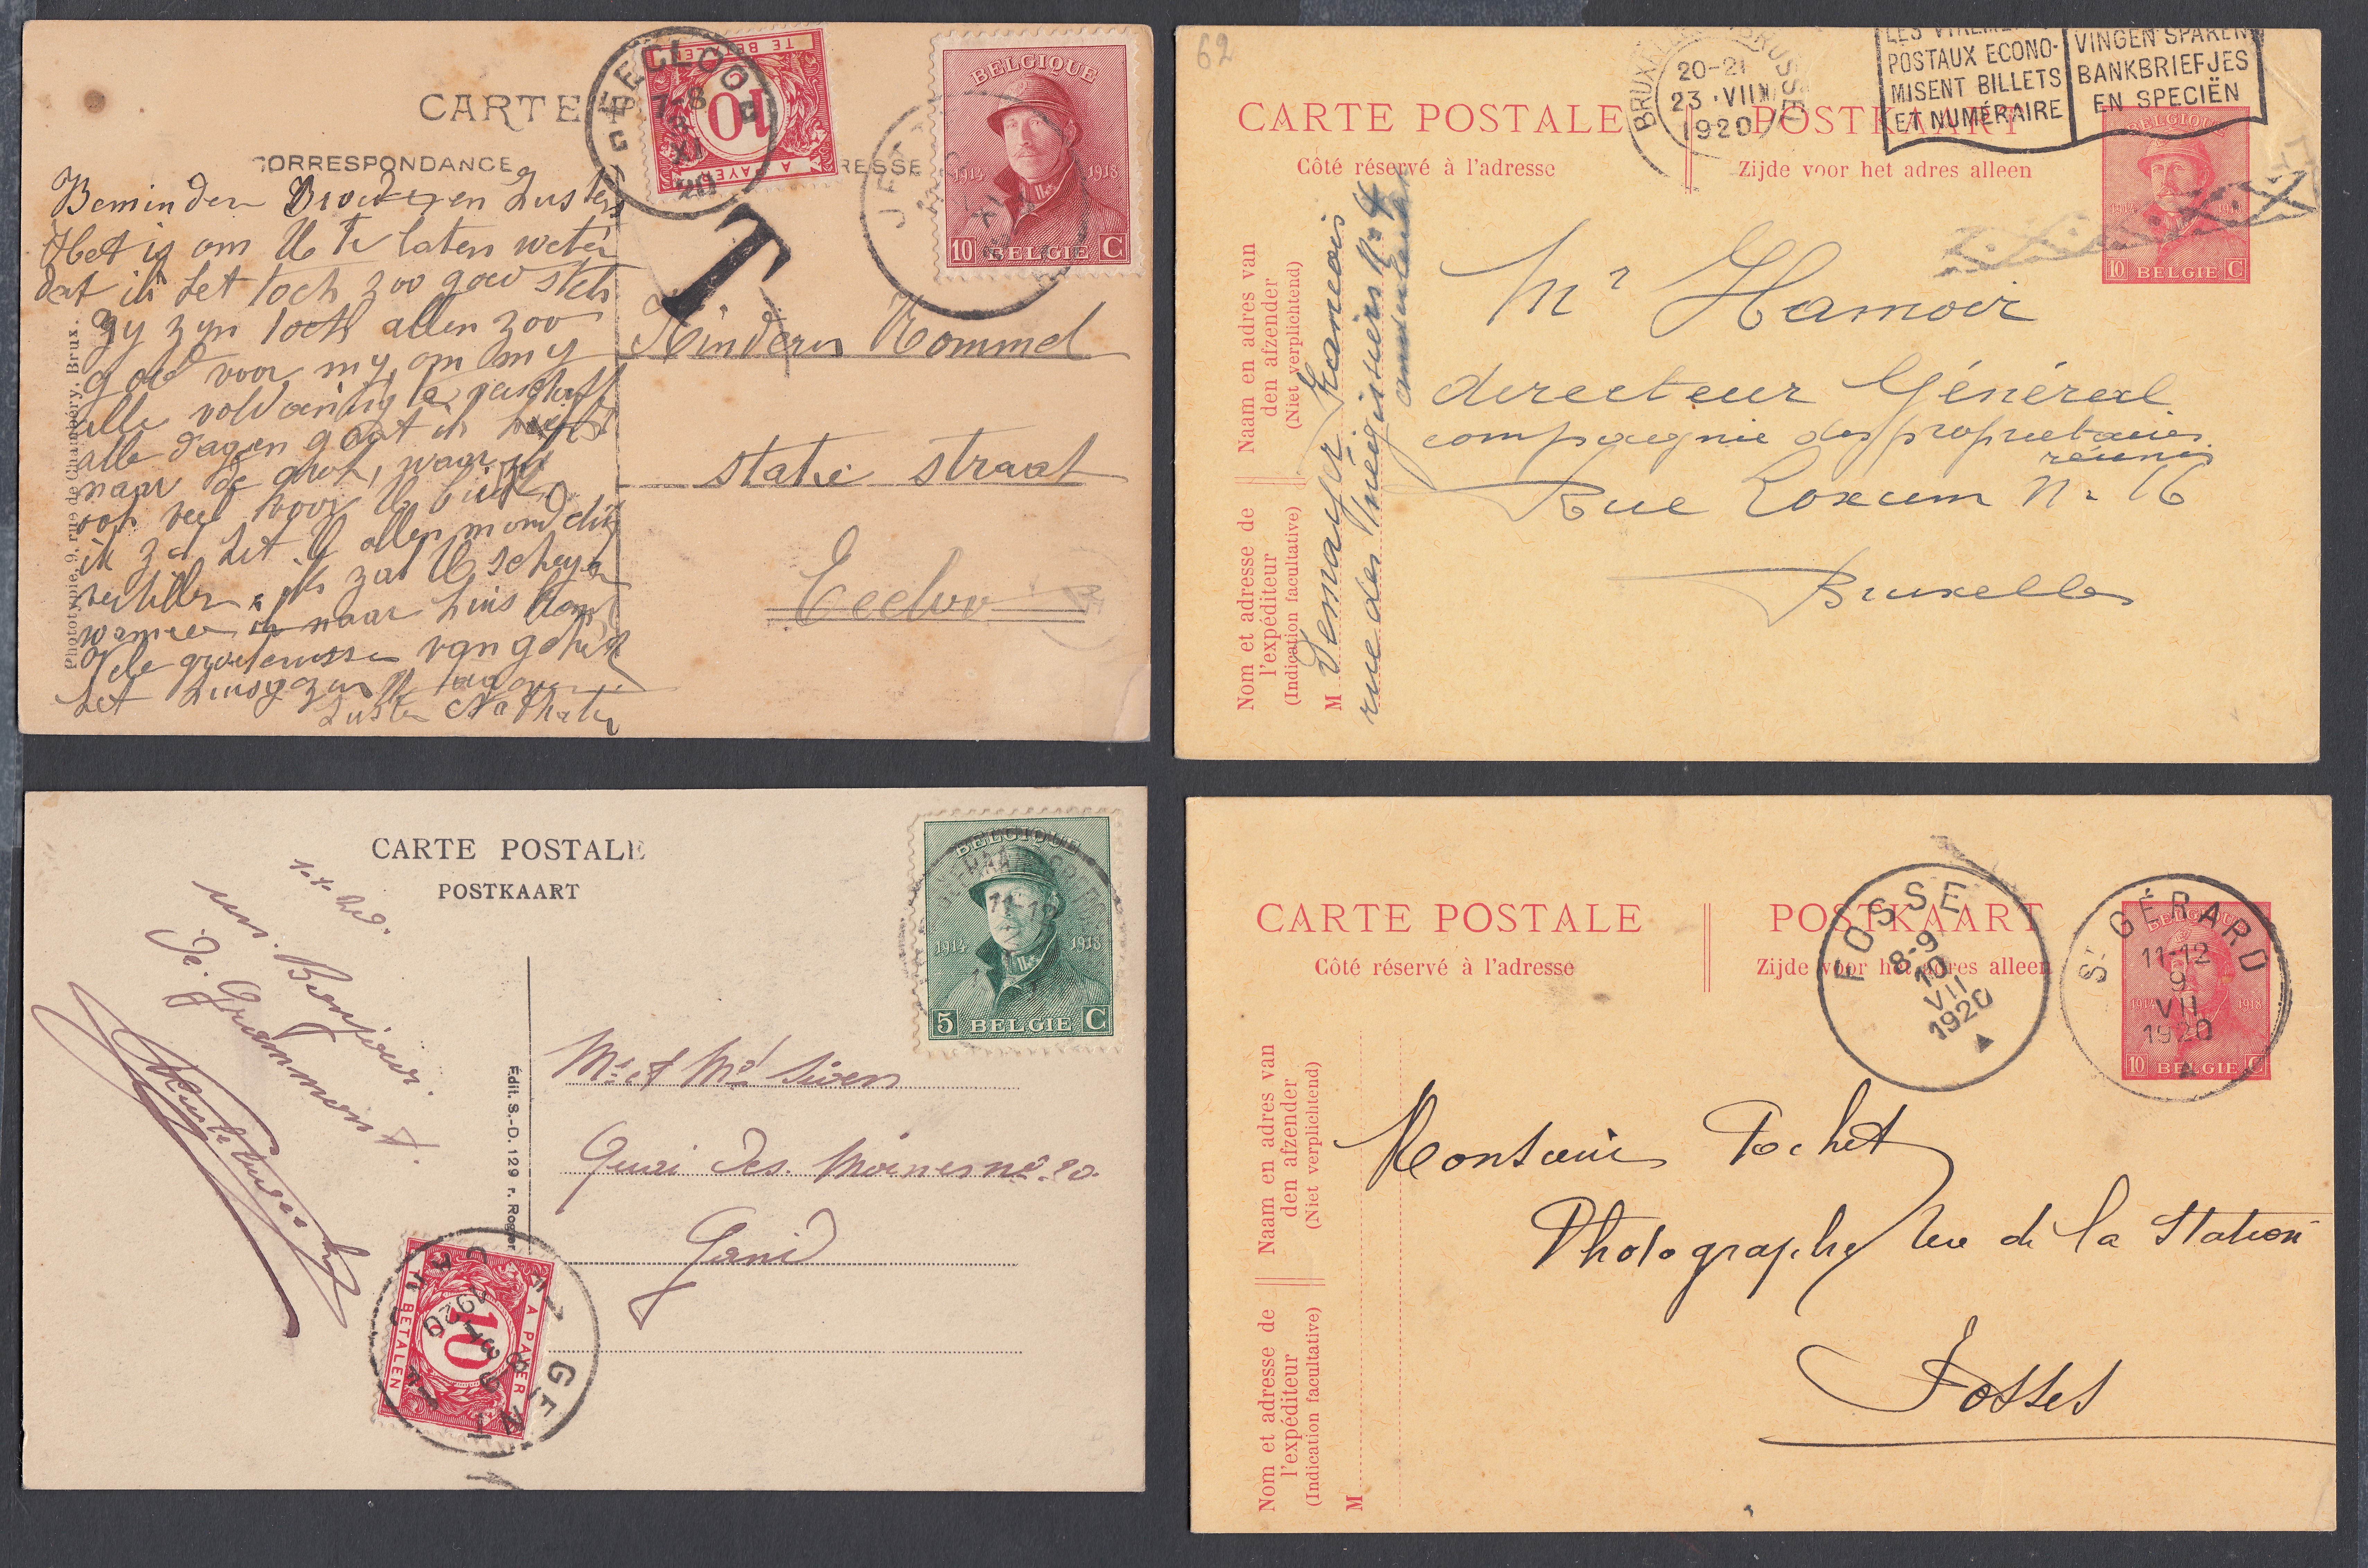 CARTE
CORRESPONDANCE
RESSE
EECLOO
7-8
XI
20
TE BETALEN
10
A PAYER
T
BELGIQUE
1914 1918
10 BELGIE C
JET
Beminden Broeder en Zusters
Het is om U Te laten weten
dat ik het toch zoo goed stel
gy zyn toch allen zoo
goed voor my, om my
alle voldoening te
alle dagen gaat ik
naar de grot, waar ik
ook veel voor U bid
ik zal het U allen mondelin
vertellen, ik zal U schryven
wanneer ik naar huis kom
Vele groetenissen van geheel
het huisgezin
Zuster
Phototypie, 9, rue de Chambéry, Brux.
Kinderen Rommel
statie straat
Eecloo
62
BRUXELLES BRUSSEL
20-21
23 · VII
1920
LES VIREMENTS
POSTAUX ECONO-
MISENT BILLETS
ET NUMÉRAIRE
VINGEN SPAREN
BANKBRIEFJES
EN SPECIËN
CARTE POSTALE POSTKAART
Côté réservé à l'adresse Zijde voor het adres alleen
BELGIQUE
1914 1918
10 BELGIE C
Naam en adres van
den afzender
(Niet verplichtend)
Nom et adresse de
l'expéditeur
(Indication facultative)
M
rue des Mégissiers N° 4
Mr Hamoir
directeur Général
compagnie des propriétaires
réunis
Rue Loxum N° 16
Bruxelles
CARTE POSTALE
POSTKAART
BELGIQUE
1914 1918
5 BELGIE C
11-12
un. Bonjour.
De. Grammont.
Édit. S.-D. 129 r. Rogier
Mr et Md
Quai des Moines no. 20.
Gand
GENT
GAND
1920
A PAYER
10
TE BETALEN
CARTE POSTALE POSTKAART
Côté réservé à l'adresse Zijde voor het adres alleen
FOSSE
8-9
10
VII
1920
ST GÉRARD
11-12
9
VII
1920
BELGIQUE
1914 1918
10 BELGIE C
Naam en adres van
den afzender
(Niet verplichtend)
Nom et adresse de
l'expéditeur
(Indication facultative)
M
Monsieur Pochet
Photographe rue de la Station
Fosses